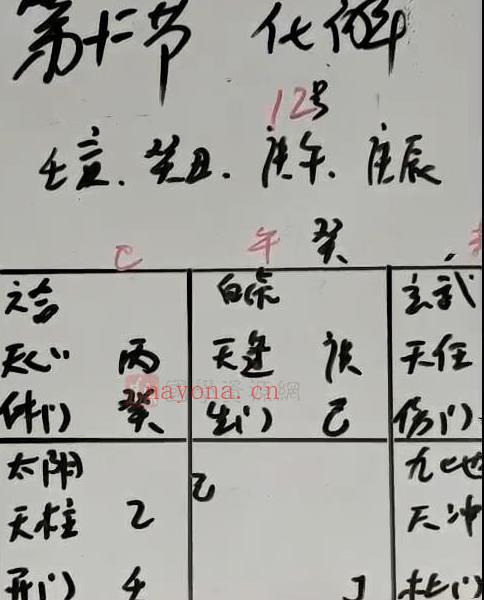 第十二节 化解
12号
壬亥.癸丑.庚午.庚辰
午 癸
六合 白虎 玄武
天心 丙 天蓬 庚 天任
休门 癸 生门 己 伤门
nayona.cn
太阴 乙 九地
天柱 乙 天冲
开门 杜门